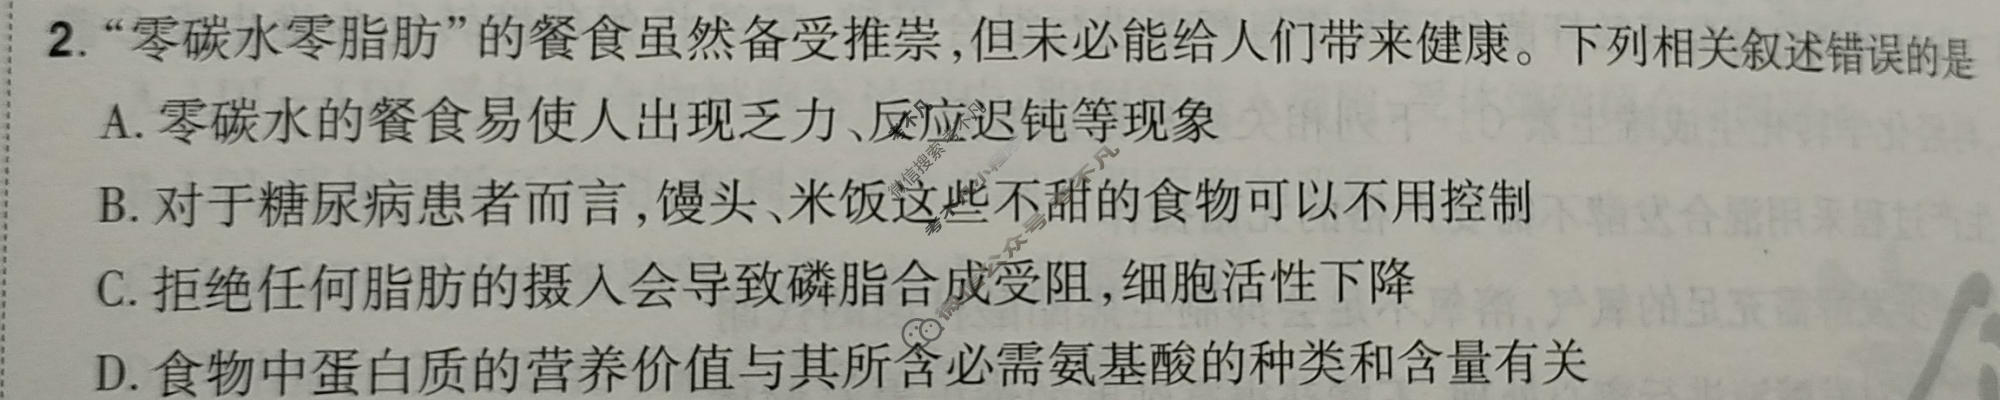 2. “零碳水零脂肪”的餐食虽然备受推崇,但未必能给人们带来健康。下列相关叙述错误的是
A. 零碳水的餐食易使人出现乏力、反应迟钝等现象
B. 对于糖尿病患者而言,馒头、米饭这些不甜的食物可以不用控制
C. 拒绝任何脂肪的摄入会导致磷脂合成受阻,细胞活性下降
D. 食物中蛋白质的营养价值与其所含必需氨基酸的种类和含量有关